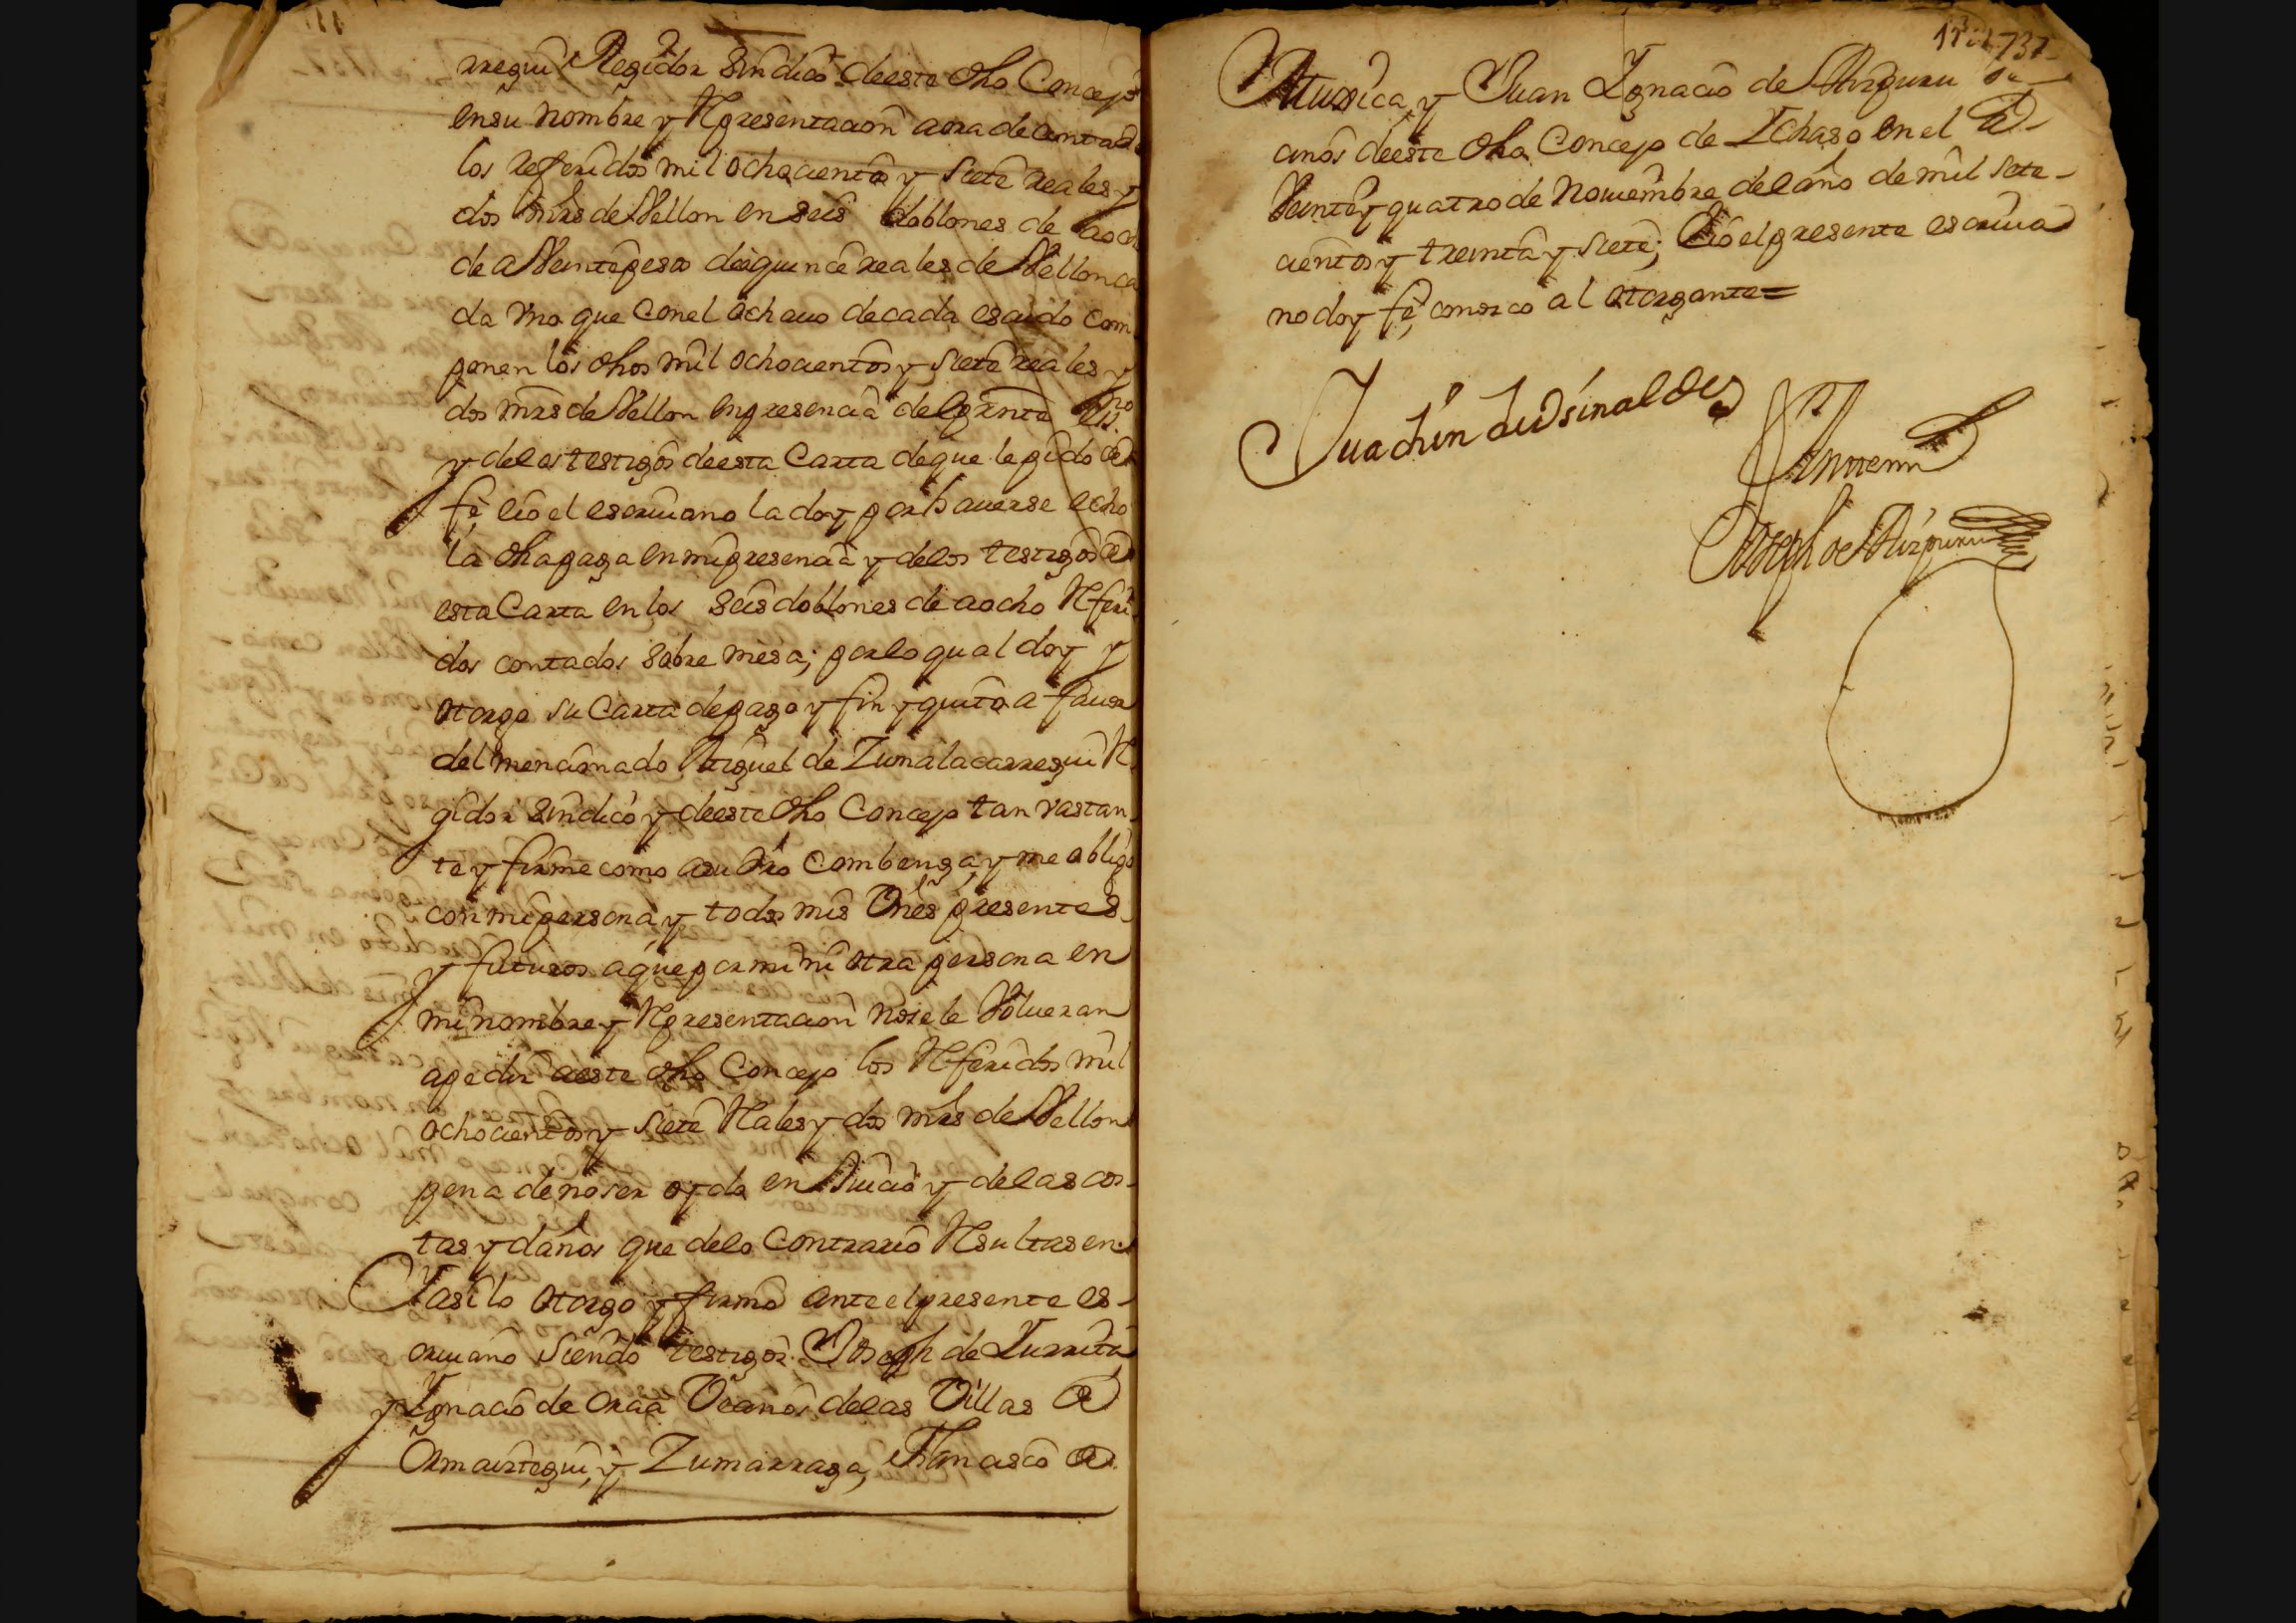 rregui Regidor Sindico deeste dho Concejo
ensu nombre y Rpresentacion aora de contado
los referidos mil ochocientos y siete reales y
dos mrs de Vellon en seis doblones de aocho
de a Veinte pesos de aquince reales de Vellon ca
da vno que conel ochauo decada escudo com
ponen los dhos mil ochocientos y siete reales y
dos mrs de Vellon enpresencia del prnte esno
y delos testigos deesta Carta deque le pido de
fe, eio el escriuano la doy por hauerse echo
la dha paga en mi presencia y delos testigos de
esta Carta en los seis doblones de aocho Rferi
dos contados sobre mesa; porlo qual doy y
otorgo su Carta depago y fin y quito a fauor
del mencionado Miguel de Zumalacarregui R
gidor sindico y deeste dho Concejo tan vastan
te y firme como asu dro combenga, y me obligo
con mi persona, y todos mis Vnes presentes
y futuros aque por mi ni otra persona en
mi nombre y Rpresentacion nosele Volueran
apedir aeste dho Concejo los Rferidos mil
ochocientos y siete Rales y dos mrs de Vellon
pena de noser oydo en Juicio y delas cos-
tas y daños que delo Contrario Rsultasen.
Yasilo otorgo y firmo ante el presente es-
criuano siendo testigos. Joseph de Yurrita
y Ygnacio de Oraa Vecinos delas Villas de
Ormaiztegui, y Zumarraga, Francisco de
1737
Mugica, y Juan Ygnacio de Aizpuru Ve
cinos deeste dho Concejo de Ychaso en el a
Veinte y quatro de Nouiembre del año de mil sete-
cientos y treinta y siete; Eio el presente escriua
no doy fe, conozco al otorgante=
Juachin de Vsinalde
Antemi
Joseph de Aizpuru